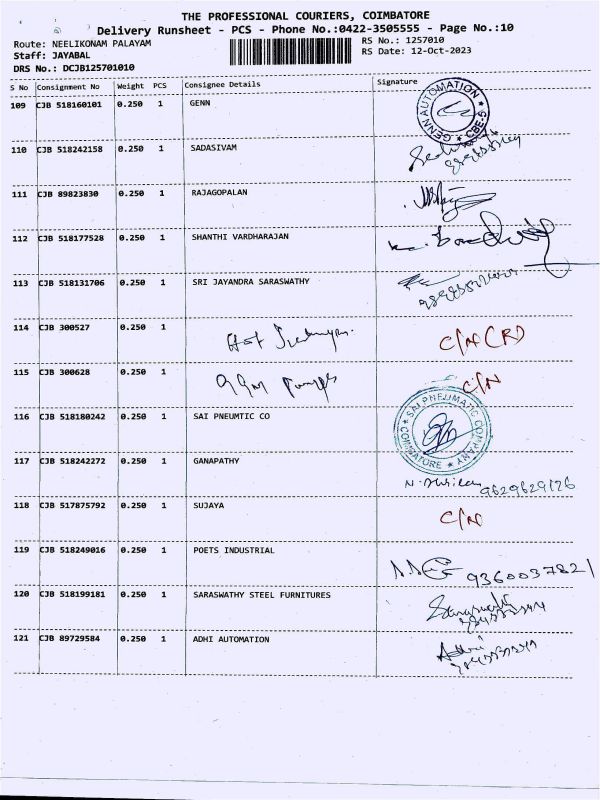 THE PROFESSIONAL COURIERS, COIMBATORE
Delivery Runsheet - PCS - Phone No.:0422-3505555 - Page No.:10
Route: NEELIKONAM PALAYAM
RS No.: 1257010
Staff: JAYABAL
RS Date: 12-Oct-2023
DRS No.: DCJB125701010
S No Consignment No Weight PCS Consignee Details Signature
109 CJB 518160101 0.250 1 GENN
GENN AUTOMATION CBE.5
110 CJB 518242158 0.250 1 SADASIVAM
111 CJB 89823830 0.250 1 RAJAGOPALAN
112 CJB 518177528 0.250 1 SHANTHI VARDHARAJAN
113 CJB 518131706 0.250 1 SRI JAYANDRA SARASWATHY
114 CJB 300527 0.250 1 C/N CRD
115 CJB 300628 0.250 1 C/N
116 CJB 518180242 0.250 1 SAI PNEUMTIC CO
SAI PNEUMATIC COMPANY COIMBATORE
117 CJB 518242272 0.250 1 GANAPATHY
9629629126
118 CJB 517875792 0.250 1 SUJAYA C/N
119 CJB 518249016 0.250 1 POETS INDUSTRIAL
9360037821
120 CJB 518199181 0.250 1 SARASWATHY STEEL FURNITURES
121 CJB 89729584 0.250 1 ADHI AUTOMATION
Adhi